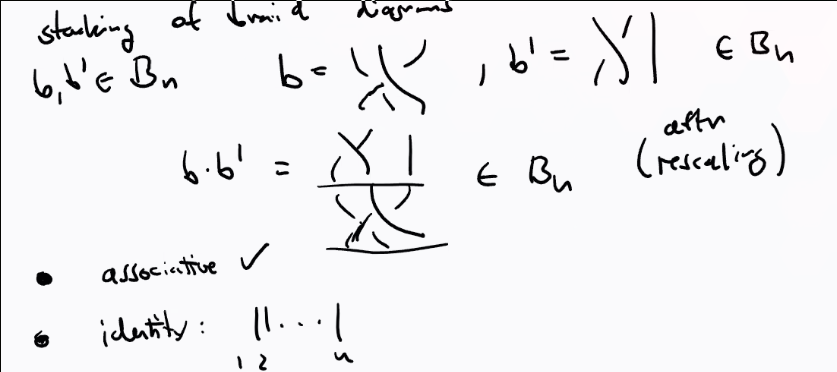 stacking of braid diagrams
b, b' ∈ Bn b = , b' = ∈ Bn
b·b' = ∈ Bn (after rescaling)
• associative ✓
• identity: || ... |
1 2 n